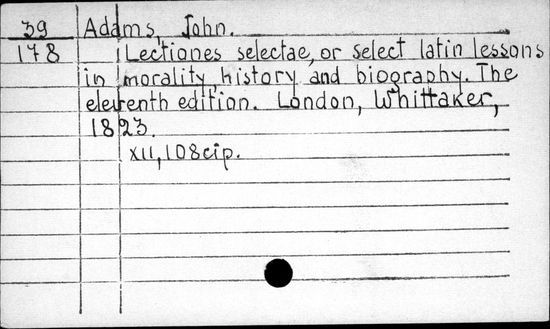 39 Adams, John.
178 Lectiones selectae, or select latin lessons
in morality, history and biography. The
eleventh edition. London, Whittaker,
1823.
XII, 108 c[i]p.